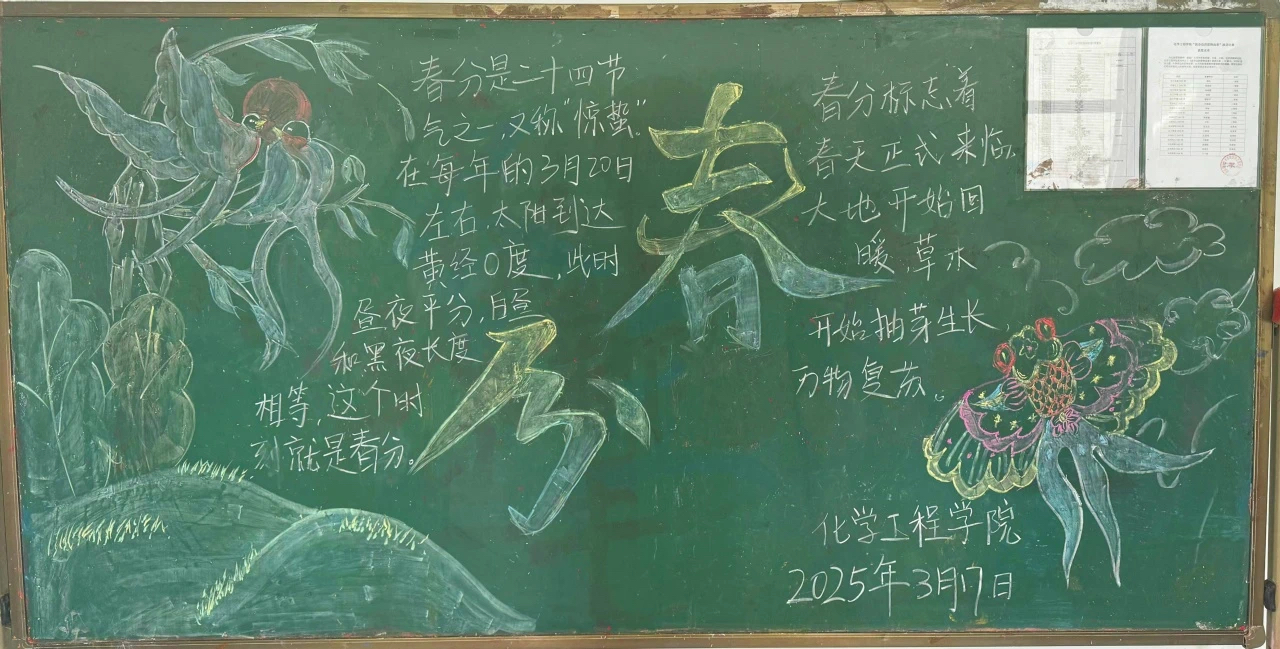 春分是二十四节
气之一,又称"惊蛰"。
在每年的3月20日
左右,太阳到达
黄经0度,此时
昼夜平分,白昼
和黑夜长度
相等,这个时
刻就是春分。
春分
春分标志着
春天正式来临,
大地开始回
暖,草木
开始抽芽生长,
万物复苏。
化学工程学院
2025年3月17日